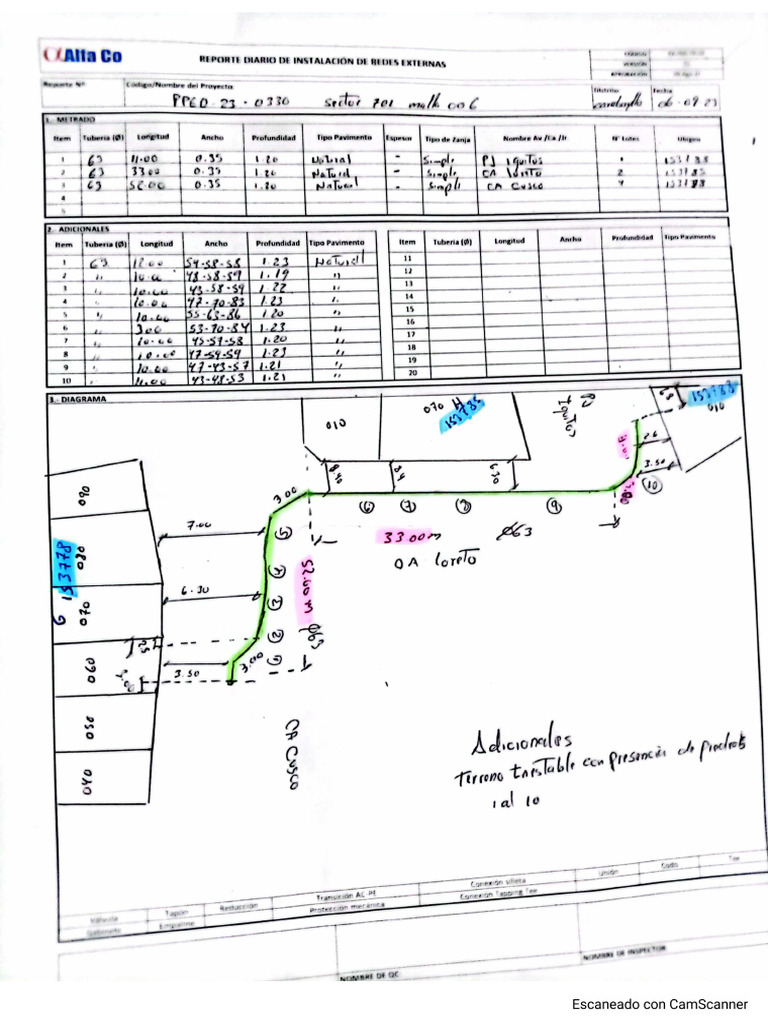 Alfa Co
REPORTE DIARIO DE INSTALACIÓN DE REDES EXTERNAS
CÓDIGO:
VERSIÓN
APROBACIÓN
Reporte Nº
Código/Nombre del Proyecto:
Distrito
Fecha
PPED-23-0330 Sector 701 malla 006
06-09-23
1. METRADO
Item Tubería (Ø) Longitud Ancho Profundidad Tipo Pavimento Espesor Tipo de Zanja Nombre Av /Ca /Jr Nº Lotes
1 63 11.00 0.35 1.20 Natural - Simple PJ Iquitos 1
2 63 33.00 0.35 1.20 Natural - Simple CA Loreto 2 153785
3 63 52.00 0.35 1.20 Natural - Simple CA Cusco
4
5
2. ADICIONALES
Item Tubería (Ø) Longitud Ancho Profundidad Tipo Pavimento Item Tubería (Ø) Longitud Ancho Profundidad Tipo Pavimento
1 63 12.00 54-58-58 1.23 Natural 11
2 " 10.00 48-58-59 1.19 " 12
3 " 10.00 43-58-59 1.22 " 13
4 " 10.00 47-70-83 1.23 " 14
5 " 10.00 55-63-86 1.20 " 15
6 " 53-70-84 1.23 " 16
7 " 10.00 45-57-58 1.20 " 17
8 " 10.00 47-59-59 1.23 " 18
9 " 10.00 47-43-57 1.21 " 19
10 " 11.00 43-48-53 1.21 " 20
3.- DIAGRAMA
010
070 H
153785
PJ
Iquitos
68
153785
010
8.40
8.4
6.70
2.6
3.50
3.00
10
090
3.00
6
7
8
9
7.00
5
33.00m
Ø63
080
153778
CA Loreto
52.00 m Ø63
6.30
G
070
2
3.00
1
060
3.50
050
CA Cusco
040
Adicionales
Terreno Inestable con presencia de piedras
1 al 10
Válvula
Tapón
Reducción
Transición AC-PE
Conexión silleta
Unión
Codo
Tee
Gabinete
Empalme
Protección mecánica
Conexión Tapping Tee
NOMBRE DE QC
NOMBRE DE INSPECTOR
Escaneado con CamScanner